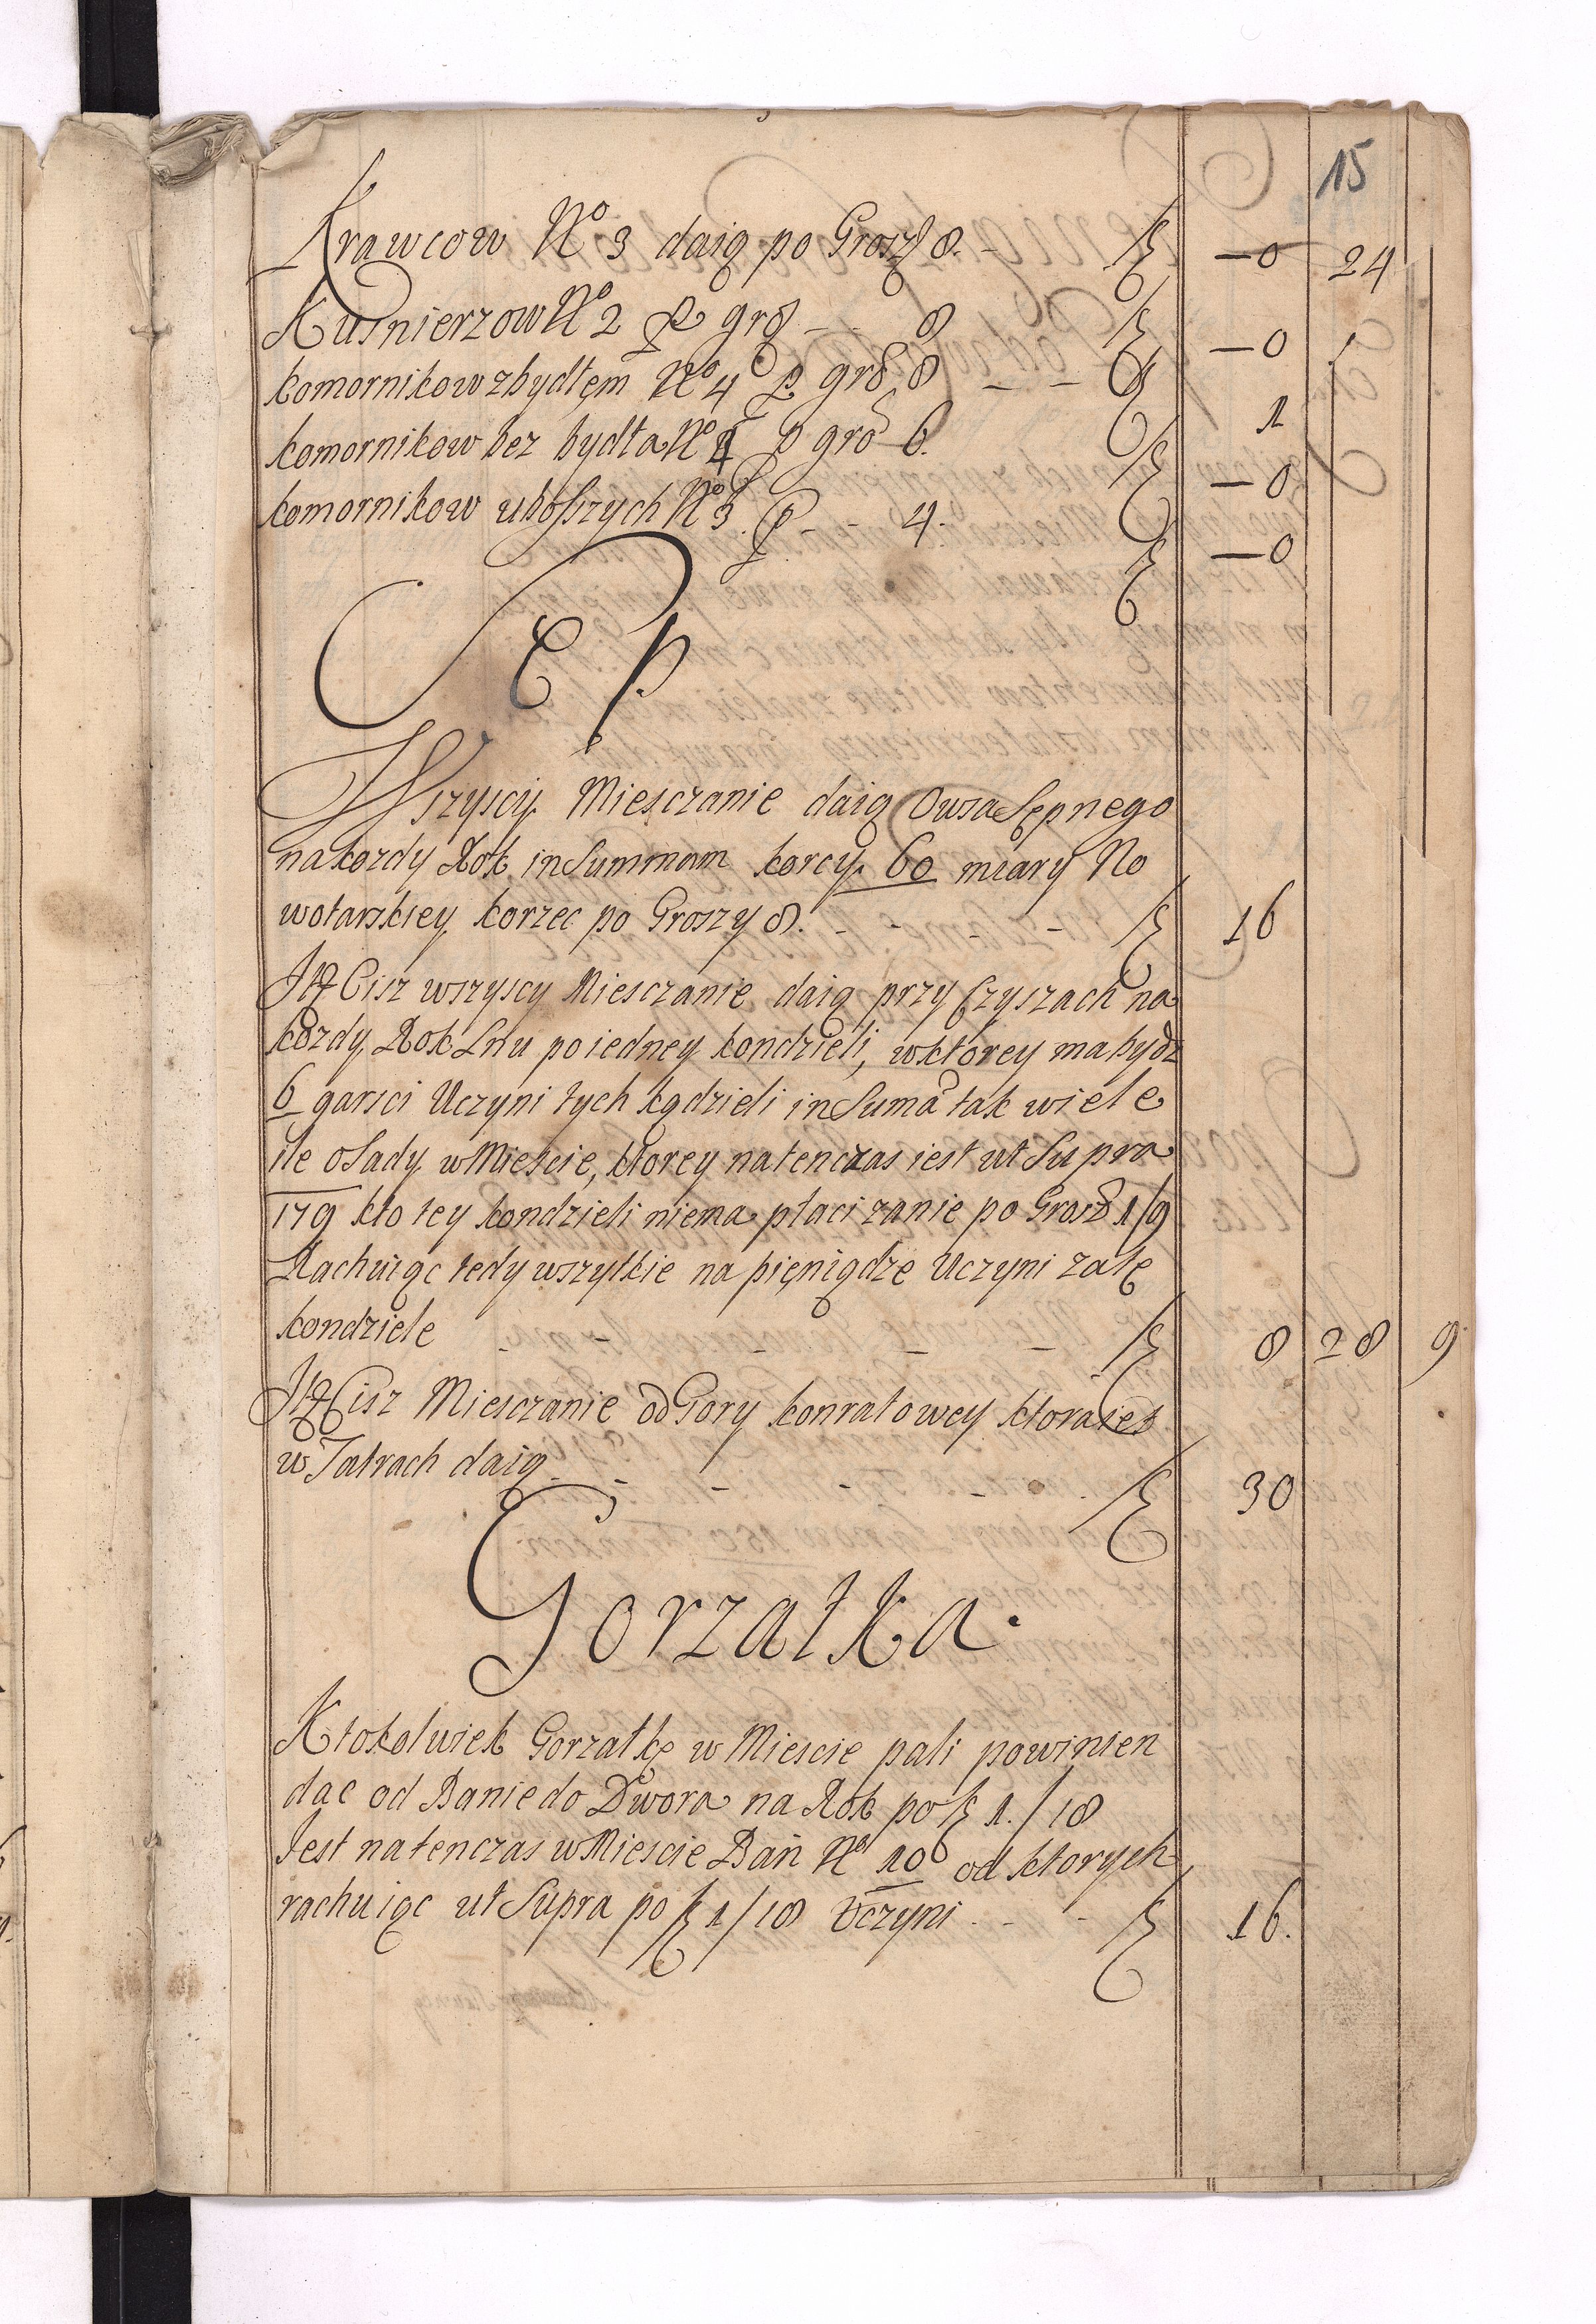 15
Krawcow No 3 daią po Groszy 8. - fl —0 24
Kusnierzow No 2 P gr8 - - 8 fl —0
komornikow z bydłęm No 4 P gr8 8 - - fl 1
komornikow bez bydła No 4 P gro 6. fl —0
komornikow uboszych No 3. P - - 4. fl —0
Sep.
Wszyscy Miesczanie daią Owsa Sepnego
na kozdy Rok in Summam korcy 60 miary No
wotarskiey korzec po Groszy 8. - - - fl 16
Itq Cisz wszyscy Miesczanie daią przy Czyszach na
kozdy Rok Lnu po iedney kondzieli, w ktorey ma bydz
6 garsci Uczyni tych kądzieli in Suma tak wiele
ile osady w Miescie, ktorey na tenczas iest ut Supra
179 kto tey kondzieli niema płaci zanie po Grosz 1/9
Rachuiąc tedy wszytkie na pięniądze Uczyni zatę
kondziele - - - - - fl 8 28 9
Itq Cisz Miesczanie od Gory konratowey ktora iest
w Tatrach daią. - - - - fl 30
Gorzałka.
Ktokolwiek Gorzałkę w Miescie pali powinien
dac od Banie do Dwora na Rok po fl 1./18
Jest na tenczas w Miescie Bań No 10 od ktorych
rachuiąc ut Supra po fl 1/18 Uczyni - - - fl 16.